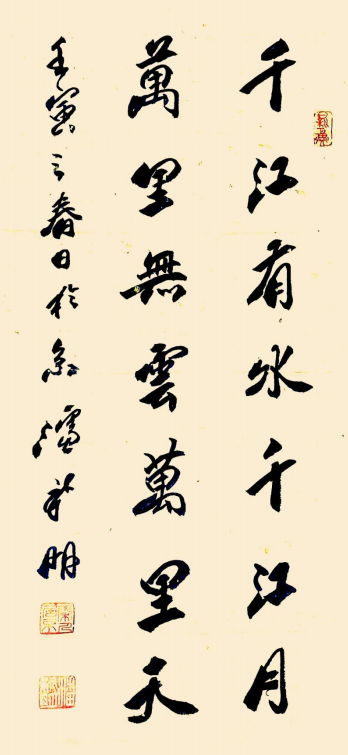 千江有水千江月
萬里無雲萬里天
壬寅之春日於
明